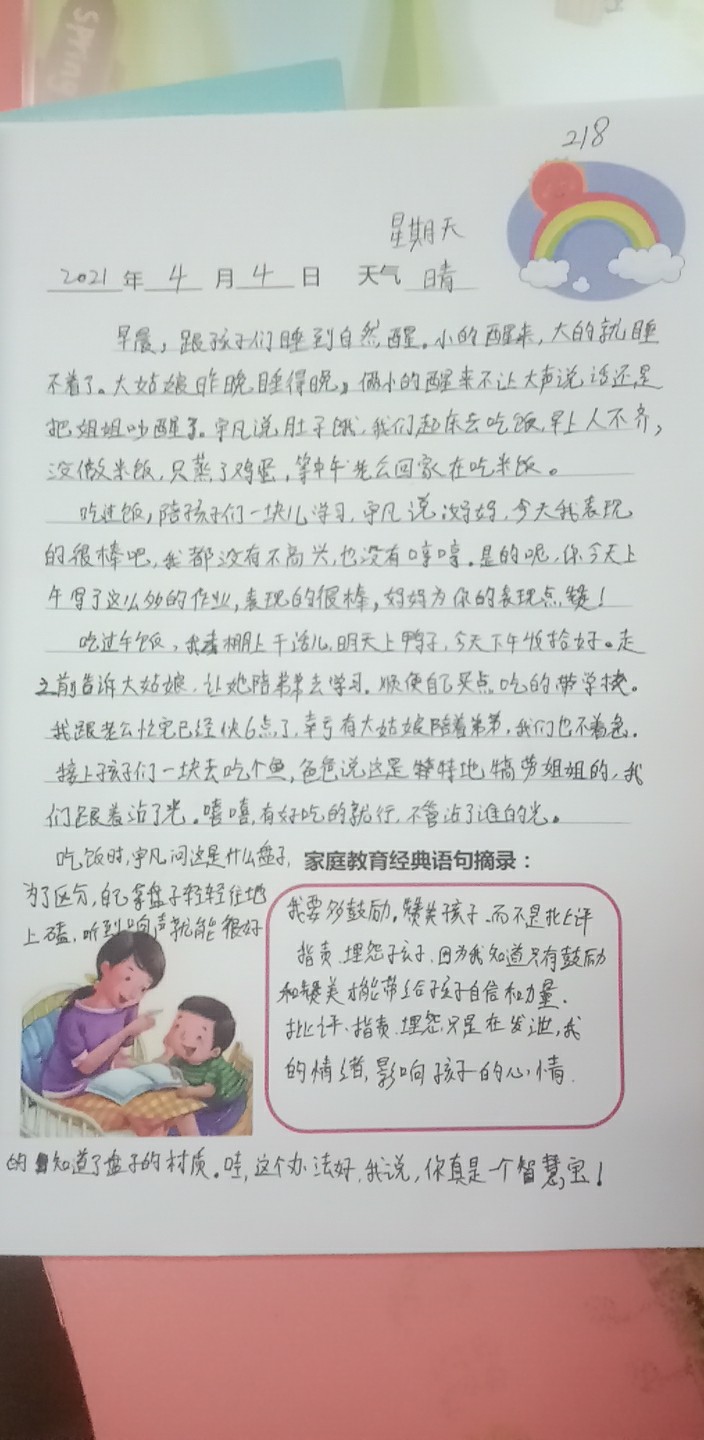 Spring
218
星期天
2021年4月4日 天气 晴
早晨，跟孩子们睡到自然醒。小的醒来，大的就睡
不着了。大姑娘昨晚睡得晚，俩小的醒来不让大声说话还是
把姐姐吵醒了。宇凡说肚子饿，我们起床去吃饭，早上人不齐，
没做米饭，只蒸了鸡蛋，等中午老公回家在吃米饭。
吃过饭，陪孩子们一块儿学习，宇凡说：好妈，今天我表现
的很棒吧，我都没有不高兴，也没有哼哼。是的呢，你今天上
午写了这么多的作业，表现的很棒，妈妈为你的表现点赞！
吃过午饭，我去棚上干活儿，明天上鸭子，今天下午收拾好。走
之前告诉大姑娘，让她陪弟弟去学习。顺便自己买点吃的带学校。
我跟老公忙完已经快6点了，幸亏有大姑娘陪着弟弟，我们也不着急。
接上孩子们一块去吃个鱼，爸爸说这是特地犒劳姐姐的，我
们跟着沾了光。嘻嘻，有好吃的就行，不管沾了谁的光。
吃饭时，宇凡问这是什么盘子，
为了区分，自己拿盘子轻轻往地
上磕，听到响声就能很好
家庭教育经典语句摘录：
我要多鼓励，赞美孩子，而不是批评
指责、埋怨孩子，因为我知道只有鼓励
和赞美才能带给孩子自信和力量，
批评、指责、埋怨只是在发泄，我
的情绪，影响孩子的心情。
的知道了盘子的材质。哇，这个办法好，我说，你真是一个智慧宝！